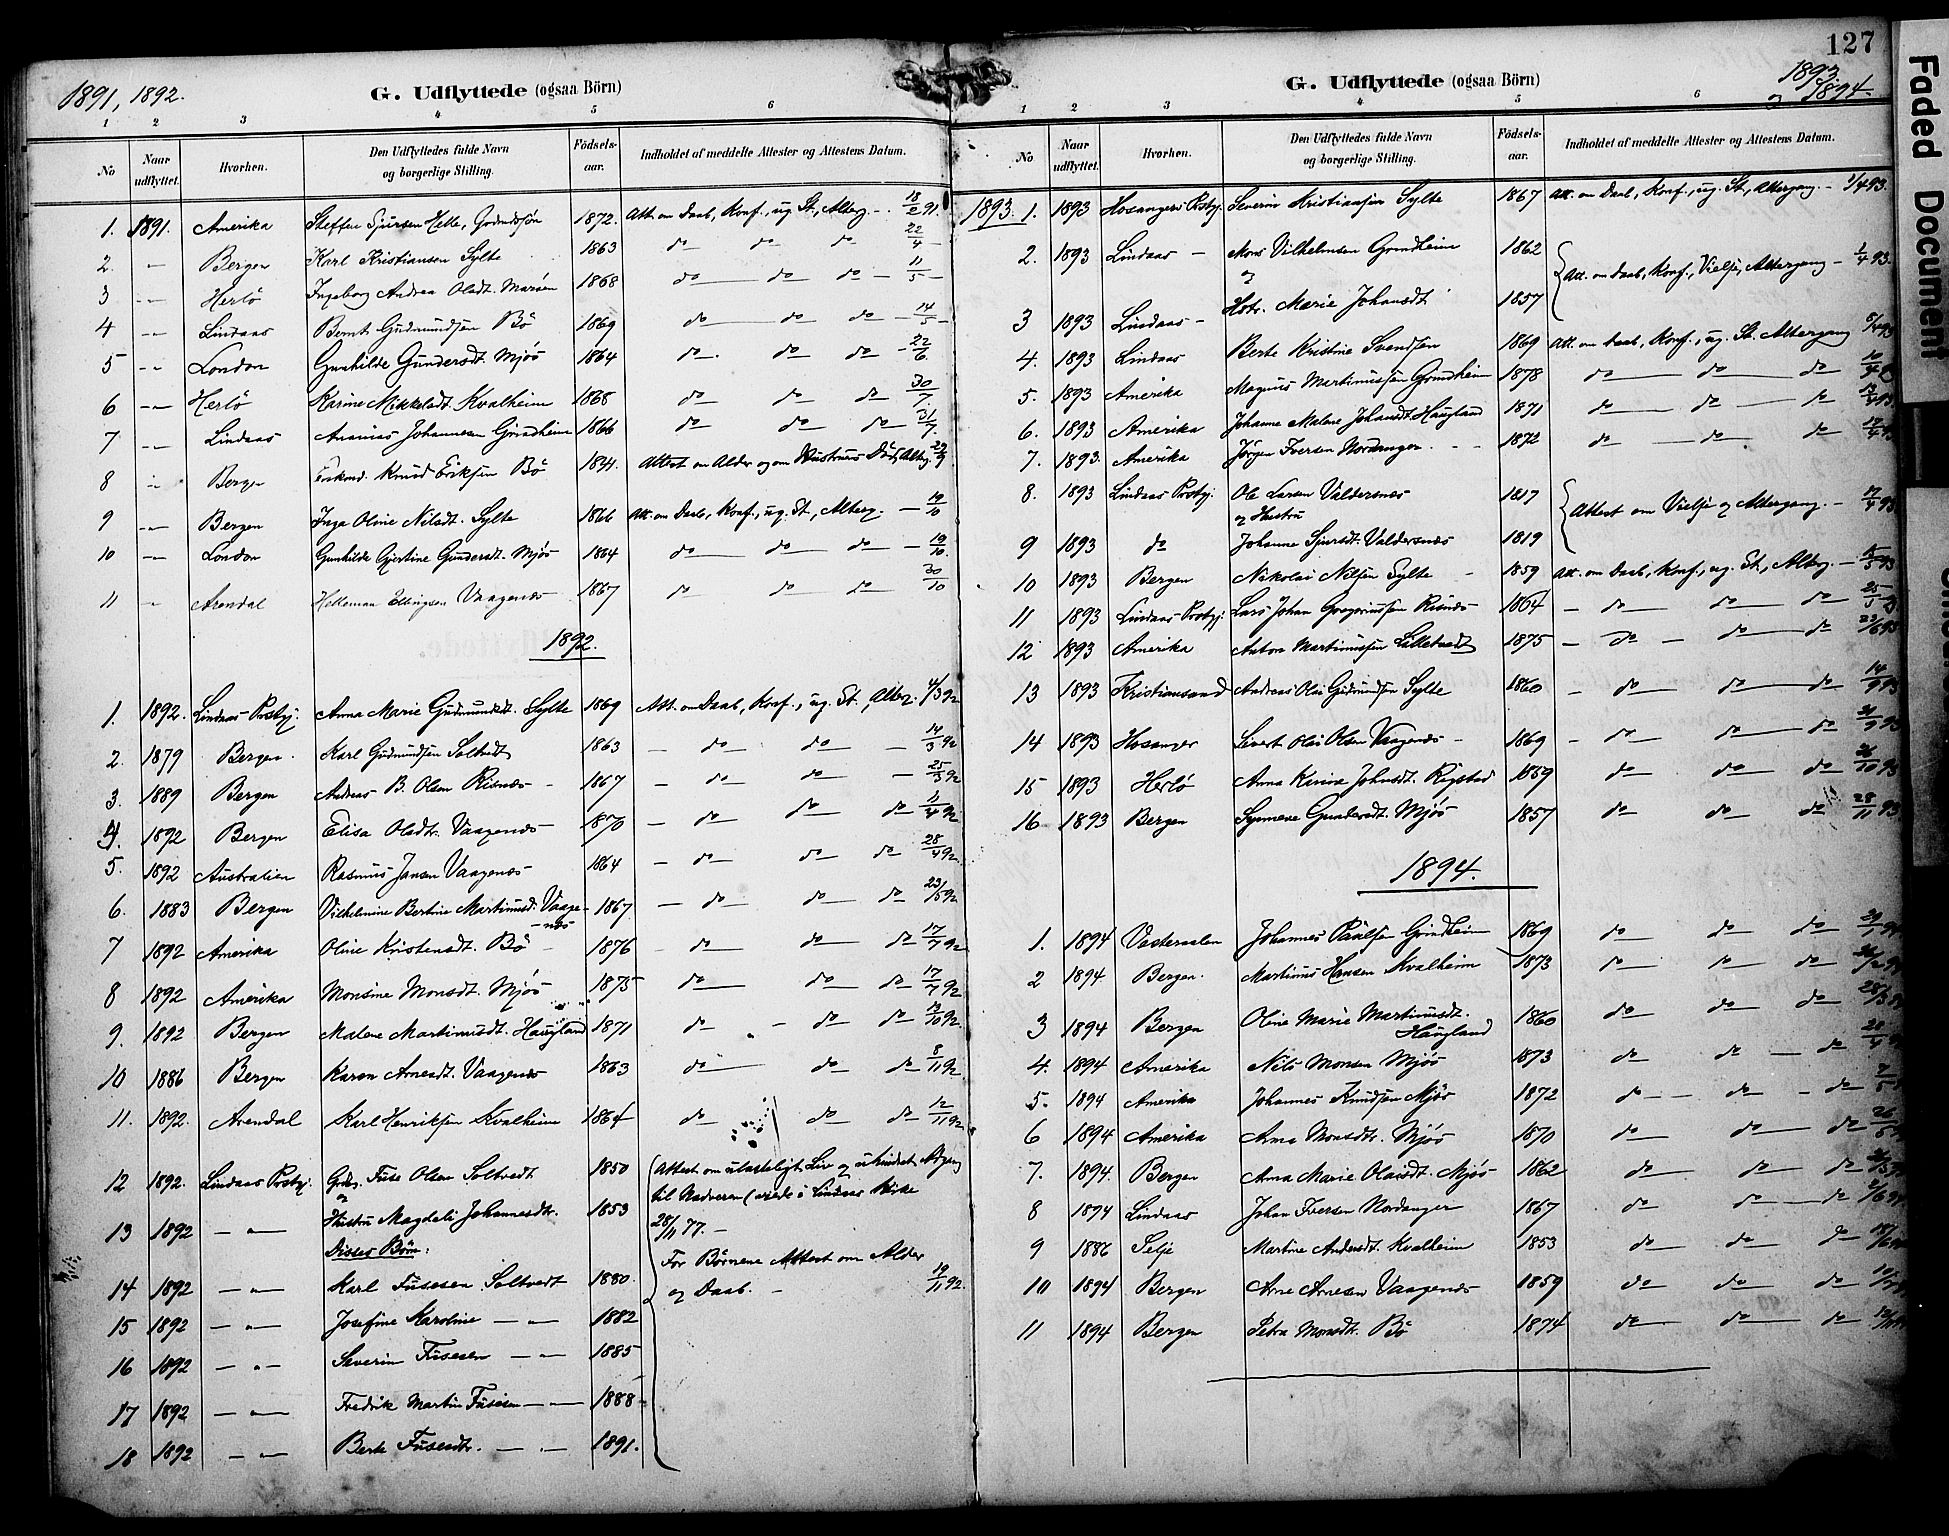 1891, 1892.
G. Udflyttede (ogsaa Börn)
1 2 3 4 5 6
No Naar udflyttet. Hvorhen. Den Udflyttedes fulde Navn og borgerlige Stilling. Födsels-aar. Indholdet af meddelte Attester og Attestens Datum.
1. 1891. Amerika Steffen Sjursen Helle, 1872. Att. om Daab, Konf., ug. St., Alterg. 18/2 91.
2. -"- Bergen Karl Kristiansen Sylte 1863 do do do 22/4
3 -"- Herlö Ingeborg Andrea Olsdt. 1868 do do do 11/5
4 -"- Lindaas Bernt Gudmundsen Bö 1869 do do do 14/5
5 -"- London Gunhilde Gundersdt. Mjös 1864 do. do do 22/6
6 -"- Herlö Karine Mikkelsdt. Kvalheim 1868 do do do 30/7
7 -"- Lindaas Johannesen Grindheim 1866 do do do 31/7
8 -"- Bergen Knud Eriksen Bö Attest om Alder og om Hustrus Död, Alterg.
9 -"- Bergen Inga Oline Nilsdt. Sylte 1866 Att. om Daab, Konf., ug. St., Alterg. 19/10
10 -"- London Gunhilde Gjertine Gundersdt. Mjös 1864 do do do 19/10
11 -"- Arendal Ellingsen Vaagenæs 1867 do do do 30/10
1892.
1. 1892. Lindaas Prstgj. Anna Marie Gudmundsdt. Sylte 1869 Att. om Daab, Konf., ug. St., Alterg. 4/3 92
2. 1879 Bergen Karl Gudmundsen Soltvedt 1863 do do 14/3 92
3. 1889 Bergen Andreas B. Olsen Risnæs 1867 do do 25/3 92
4. 1892 Bergen Elisa Olsdtr. Vaagenæs 1870 do do do 11/4 92
5. 1892 Australien Rasmus Jansen Vaagenæs 1864 do do do 28/4 92
6. 1883 Bergen Vilhelmine Bertine Martinusd. Vaage-næs 1867 do do do 23/5 92
7 1892 Amerika Oline Kristensdt. Bö 1876 do do do 17/7 92
8 1892 Amerika Monsine Monsdt. Mjös 1875 do do do 17/7 92
9. 1892 Bergen Malene Martinusdt. Haugland 1871 do do do
10 1886 Bergen Karen Arnesdt. Vaagenæs 1863 do do do 8/11 92
11. 1892. Arendal Karl Henriksen Kvalheim 1864 do do do 12/11 92
12 1892. Lindaas Prstgj. Fuse Olsen Soltvedt 1850 Attest om ulasteligt Liv og uhindret Adgang
og til Nadveren (viede i Lindaas Kirke
13 1892 -"- Hustru Magdeli Johannesdtr. 1853 28/11 77. -
Disses Börn: For Börnene Attest om Alder
14 1892 -"- Karl Fusesen Soltvedt 1880. og Daab. 19/11 92.
15 1892 -"- Josefine Karoline -"- 1882
16 1892 -"- Severin Fusesen -"- 1885
17 1892 -"- Fredrik Martin Fusesen -"- 1888
18 1892 -"- Berte Fusesdtr. -"- 1891.
127
1893
og 1894.
G. Udflyttede (ogsaa Börn)
1 2 3 4 5 6
No Naar udflyttet. Hvorhen. Den Udflyttedes fulde Navn og borgerlige Stilling. Födsels-aar. Indholdet af meddelte Attester og Attestens Datum.
1893. 1. 1893 Hosangers Prstgj. Severin Kristiansen Sylte 1867 Att. om Daab, Konf., ug. St., Altergang. 1/4 93.
2. 1893 Lindaas Mons Vilhelmsen Grindheim 1862 Att. om Daab, Konf., Vielse, Altergang 93.
og
3 1893 Lindaas Hstr. Marie Johansdt 1857
4. 1893 Lindaas Berte Kristine Svendsen 1869 Att. om Daab, Konf., ug. St. Altergang 93
5. 1893 Amerika Magnus Martinussen Grindheim 1878 do do do
6. 1893 Amerika Johanne Malene Johansdt Haugland 1871 do do do
7. 1893. Amerika Jörgen Iversen Nordanger 1872 do do do
8. 1893 Lindaas Prstgj. Ole Larsen Valdersnæs 1817 Attest om Vielse og Altergang. 93
og Hustru
9 1893 do Johanne Sjursdt. Valdersnæs 1819
10 1893 Bergen Nikolai Nilsen Sylte 1859 Att. om Daab, Konf., ug. St., Alterg. 93
11 1893 Lindaas Prstgj. Lars Johan Gregoriussen Risnæs 1864 do do do 25/5
12 1893 Amerika Anton Martinussen Lilletvedt 1875 do do do 23/6 93
13 1893 Kristiansand Andreas Olai Gudmundsen Sylte 1860 do do do 14/9 93
14 1893 Hosanger Sivert Olai Olsen Vaagenæs 1869 do do do 93
15 1893 Herlö Anna Kirine Johnsdt. Rigstad 1869 do do do 26/10 93
16 1893 Bergen Synneve Gundersdt. Mjös 1857 do do do 28/11 93
1894.
1. 1894 Vesteraalen Johannes Paulsen Grindheim 1869 do do do
2 1894 Bergen. Martinus Hansen Kvalheim 1873 do do do
3 1894 Bergen Oline Marie Martinusdt. Haugland 1860 do do do 28/3
4. 1894 Amerika Nils Monsen Mjös 1873 do do do
5. 1894 Amerika Johannes Knudsen Mjös 1872 do do do
6 1894 Amerika Anna Monsdtr. Mjös 1870 do do do
7. 1894. Bergen Anna Marie Olaisdt. Mjös 1862 do do do
8 1894 Lindaas Johan Iversen Nordanger 1867 do do do
9 1886 Selje Martine Andersdt. Kvalheim 1853 do do do
10 1894 Bergen Arne Arnesen Vaagenæs 1859 do do do
11 1894 Bergen Petra Monsdtr. Bö 1874 do do do
Faded Document